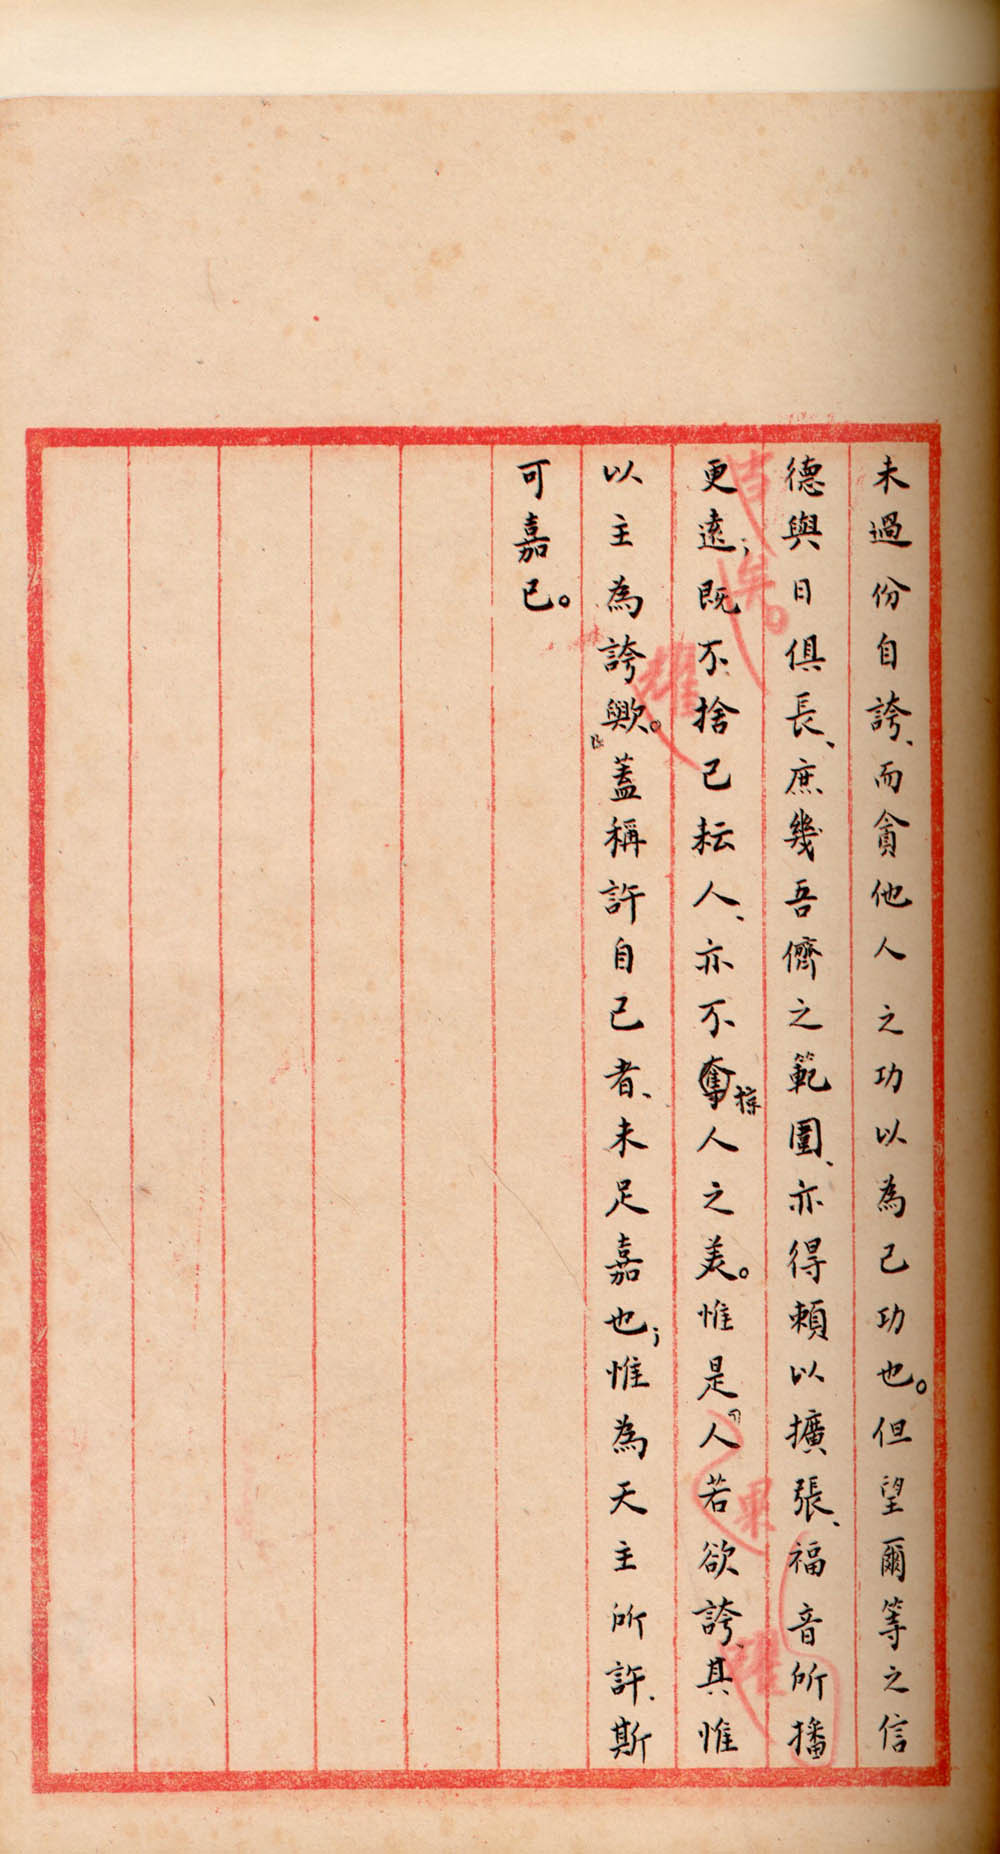 未過份自誇、而貪他人之功以為己功也。但望爾等之信
德與日俱長、庶幾吾儕之範圍、亦得賴以擴張、福音所播
更遠；既不捨己耘人、亦不奪人之美。惟是人若欲誇、其惟
掠
以主為誇歟。蓋稱許自己者、未足嘉也；惟為天主所許、斯
可嘉已。